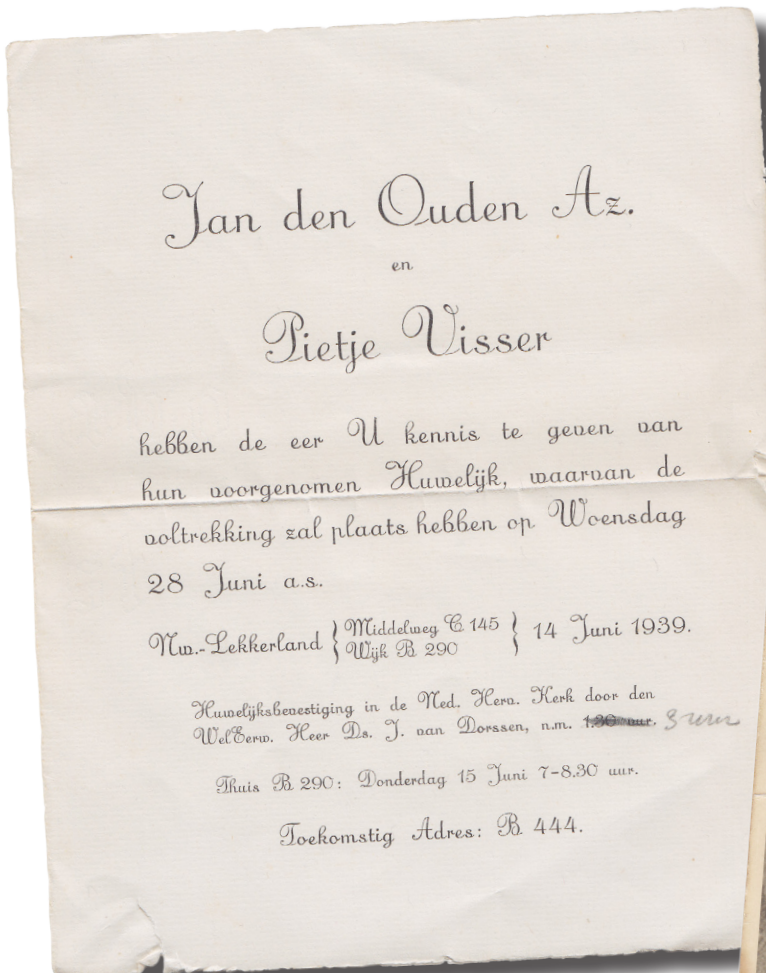 Jan den Ouden Az.
en
Pietje Visser
hebben de eer U kennis te geven van
hun voorgenomen Huwelijk, waarvan de
voltrekking zal plaats hebben op Woensdag
28 Juni a.s.
Nw.-Lekkerland { Middelweg C 145 } 14 Juni 1939.
Wijk B 290
Huwelijksbevestiging in de Ned. Herv. Kerk door den
WelEerw. Heer Ds. J. van Dorssen, n.m. 1.30 uur. 3 uur
Thuis B 290: Donderdag 15 Juni 7-8.30 uur.
Toekomstig Adres: B 444.